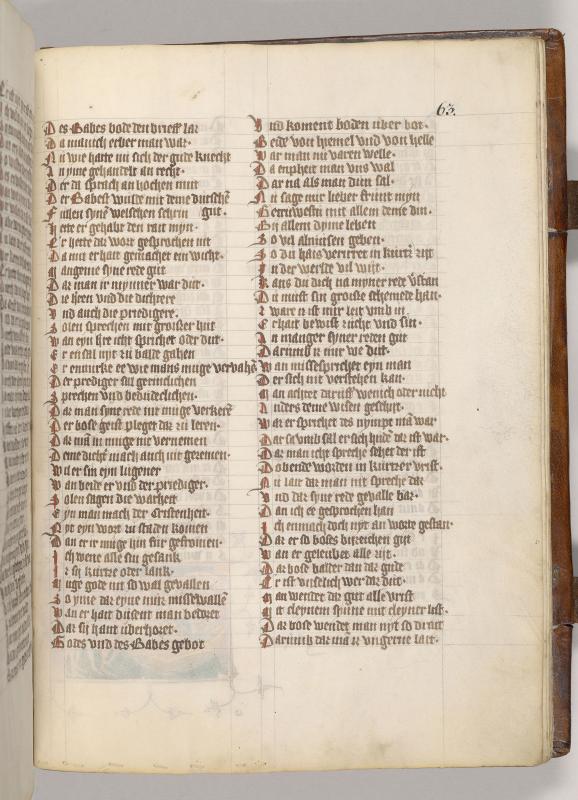 63.
Des Babes bode den brieff las
Da manich erber man was.
Nu wie hatte nu sich der gude knecht
An yme gehandelt an recht.
Der da sprach an hochen mut
Der Babest wulde mit deme dutschē
Fullen synē welschen schrin gut.
Hette er gehabt den rait myn.
Er hette daz wort gesprochen nit
Da mit er hait gemachet ein wicht.
Mangeme syne rede gut
Daz man ir mynner war dut.
Die heren vnd die dichtere
Vnd auch die priedigere.
Solen sprechen mit groisser hut
Wan eyn ihre icht sprichet oder dut.
Er ensal nyt zu balde gahen
Er enmircke ee wie mans muge vervahē
Der prediger sal gerimclichen
Sprechen vnd bedudeclichen.
Daz man syne rede nit muge verkerē
Der bose geist pleget daz zu leren.
Daz mā in muge nit vernemen
Deme dichtē mach auch nit gezemen.
Wil er sin eyn lugener
Wan beide er vnd der priediger.
Solen sagen die warheit
Eyn man nach der Cristenheit.
Nyt eyn wort zu staden komen
Dan er ir muge hin fur gefromen.
Ich wene alle sin gesank
Ir sij kurtze oder lank.
Muge gode nit so wal gevallen
So yme daz eyne muz missewallē
Wan er hait dusent man bedoret
Daz sij haint uberhoret.
Godes vnd des Babes gebot
Vnd koment boden uber bot.
Bede von hymel vnd von helle
War man in varen welle.
Da enpheit man vns wal
Dar na als man dun sal.
Nu sage mir lieber frunt myn
Getruwestu mit allem deme din.
By allem dyme leben
So vil almusen geben.
So du hais verirret in kurtzer zijt
In der werlde vil wijt.
Kans du dich na myner rede v̄stan
Du must sin groisse schemede han.
Zware iz ist mir leit vmb in
Er hait bewist zucht vnd sin.
In manger syner reden gut
Darumb iz mir we dut.
Wan missesprichet eyn man
Der sich nit verstehen kan.
Man achtet daruff wenich oder nicht
Anders deme wisen geschijt.
Waz er sprichet des nympt mā war
Dar vmb sal er sich hudē daz ist war.
Daz man icht spreche sehet der ist
Dobende worden in kurtzer vrist.
Nu lait daz man nit spreche daz
Vnd daz syne rede gevalle baz.
Dan ich ee gesprochen han
Ich enmach doch nyt an worte gestan.
Daz er so boses bizeichen gyt
Wan er geleubet alle zijt.
Daz bose balder dan daz gude
Er ist vnselich wer daz dut.
Man wendet die gut alle vrist
Mit cleynem synne mit cleyner list.
Daz bose wendet man nyt so drait
Darumb daz mā iz vngerne lait.